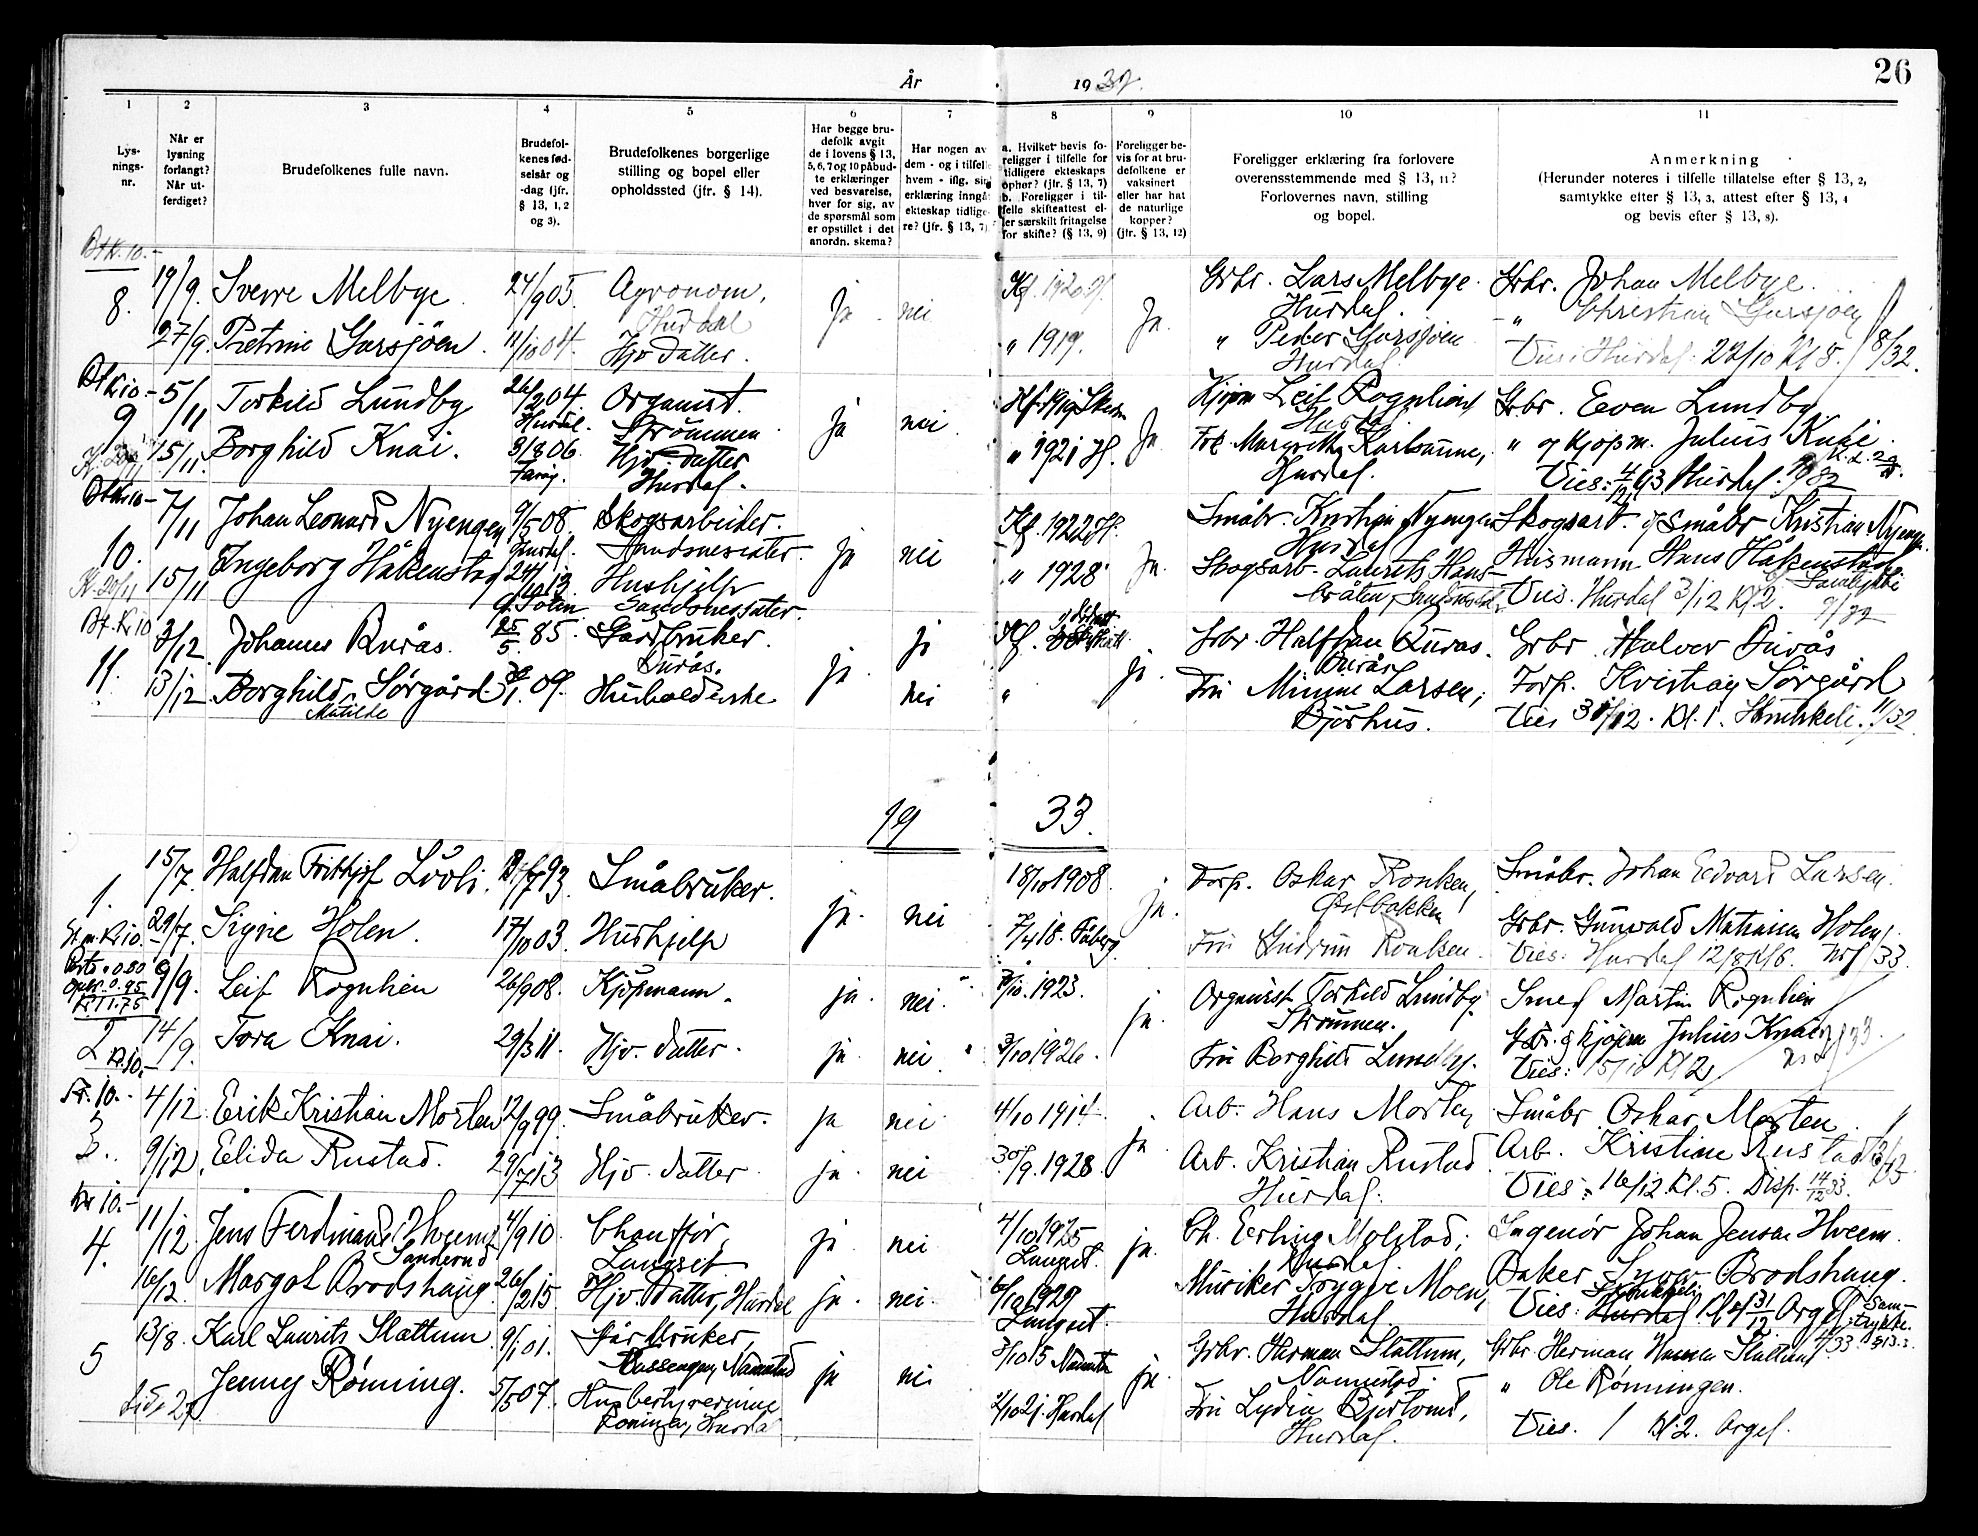 26
År 1932.
1 2 3 4 5 6 7 8 9 10 11
Lys-
nings-
nr.
Når er
lysning
forlangt?
Når ut-
ferdiget?
Brudefolkenes fulle navn.
Brudefol-
kenes fød-
selsår og
-dag (jfr.
§ 13, 1, 2
og 3).
Brudefolkenes borgerlige
stilling og bopel eller
opholdssted (jfr. § 14).
Har begge bru-
defolk avgit
de i lovens § 13,
5, 6, 7 og 10 påbud-
te erklæringer
ved besvarelse,
hver for sig, av
de spørsmål som
er opstillet i det
anordn. skema?
Har nogen av
dem - og i tilfelle
hvem - iflg. sin
erklæring inngå
ekteskap tidlige-
re? (jfr. § 13, 7)
a. Hvilket bevis fo-
religger i tilfelle for
tidligere ekteskaps
ophør? (jfr. § 13, 7)
b. Foreligger i til-
felle skifteattest el-
ler særskilt fritagelse
for skifte? (§ 13, 9)
Foreligger be-
vis for at bru-
defolkene er
vaksinert
eller har hat
de naturlige
kopper?
(jfr. § 13, 12)
Foreligger erklæring fra forlovere
overensstemmende med § 13, 11?
Forlovernes navn, stilling
og bopel.
Anmerkning
(Herunder noteres i tilfelle tillatelse efter § 13, 2,
samtykke efter § 13, 3, attest efter § 13, 4
og bevis efter § 13, 8).
Bt kr. 10.-
8. 19/9. Sverre Melbye 24/9 05. Agronom, Hurdal ja nei Kf. 1920 H. Ja. Grbr. Lars Melbye. Hurdal. Grbr. Johan Melbye.
27/9. Petrine Garsjøen 11/10 04. Hjv. datter. " 1919. " Peder Garsjøen Hurdal. " Christian Garsjøen
Vies: Hurdal 22/10 Kl 5. 8/32.
Bt kr 10-
9 5/11 Torkild Lundby 26/2 04 Hurdal. Organist. Strømmen ja nei. Ja Kjøpm Leif Rognlien Grbr. Even Lundby
15/11. Borghild Knai. 3/8 06. Hjv. datter Hurdal. " 1921 H. Frk. Margrethe Hurdal. " og Kjøpm. Julius Knai.
Vies: 4/12 Kl 3 Hurdal. 9/32
Bt kr 10-
10. 7/11 Johan Leonard Nyengen 9/5 08. Hurdal. Skogsarbeider. ja nei Kf. 1922 H. Ja. Småbr. Kristian Nyengen Hurdal Skogsarb. og småbr Kristian Nyengen.
15/11 Ingeborg Håkenstad 24/10 13 Hushjelp " 1928 Skogsarb. Laurits Hans- Husmann Hans Håkenstad
Vies. Hurdal 3/12 Kl 2. Samtykke 9/32
Bt. kr 10
11. 3/12 Johannes Burås. 25/5 85. Gardbruker. Burås. ja ja Kf. ja. Grbr. Halfdan Burås. Burås Grbr Halvor Burås
13/12 Borghild Matilde Sørgård. 09. Husholderske nei " Fru Minnie Larsen, Bjørhus. Torp. Kristian Sørgård
Vies 31/12. Kl. 1. 11/32
19 33.
1. 15/7. Halfdan Frithjof Lövli. 93. Småbruker. ja. nei 18/10 1908. ja. Torp. Oskar Ronken, Østbakken Småbr. Johan Edvard Larsen.
29/7. Signe Holen. 17/10 03. Hushjelp 7/4 18. Fåberg Fru Gudrun Ronken. Grbr. Gunvald Holen.
Vies: Hurdal 12/8 Kl 6. 33.
Porto 0.80
0.95
Kr 11.75
2 9/9. Leif Rognlien 26/9 08. Kjøpmann. ja. nei. 1923. ja. Organist Torkild Lundby. Strømmen. Smed Martin Rognlien
14/9. Tora Knai. 29/3 11. Hjv. datter. ja. nei. 3/10 1926. Fru Borghild Lundby. Grbr. og kjøpm Julius Knai
Kr. 10.- Vies: 15/10 Kl 2
Kr. 10.-
3. 4/12. Erik Kristian Morten 12/9 99. Småbruker. ja nei. 4/10 1914. ja Arb. Hans Morten Småbr Oskar Morten.
9/12. Elida Rustad. 29/7 13 Hjv. datter ja. nei 30/9. 1928. Arb. Kristian Rustad Hurdal. Arb. Kristine Rustad
Vies: 16/12 Kl. 5. Disp. 14/12 33.
Kr 10.-
4. 11/12 Jens Ferdinand Hveem Sanderud 4/9 10. Chauffør, Langset ja. nei. 4/10 1925 Langset. ja. Ch. Erling Molstad, Hurdal Ingenør Johan Jensen Hveem.
16/12 Margot Brodshaug 26/2 15 Hjv. datter, Hurdal ja. nei. 1929 Langset. Musiker Trygve Moen, Hurdal Baker Syver Brodshaug.
Vies: Hurdal 31/12 Orgel Sam- tykke.
5 13/8. Karl Laurits Slattum 9/1 01. Gårdbruker, Nannestad ja nei 3/10 15 Nannesta ja. Grbr. Herman Slattum, Nannestad. Grbr Herman Slattum
Jenny Rønning. 5/5 07. Husbestyrerinne Hurdal 2/10 21. Hurdal Fru Lydia Hurdal. " Ole Rønningen.
Vies. / Kl. 2. Orgel.